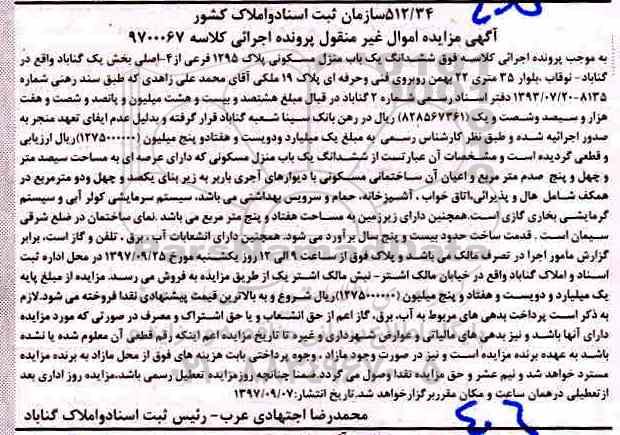 ۵۱۲/۳۴سازمان ثبت اسنادواملاک کشور
آگهی مزایده اموال غیر منقول پرونده اجرائی کلاسه ۹۷۰۰۰۶۷
به موجب پرونده اجرائی کلاسه فوق ششدانگ یک باب منزل مسکونی پلاک ۱۲۹۵ فرعی از۴-اصلی بخش یک گناباد واقع در
گناباد- نوقاب ،بلوار ۳۵ متری ۲۲ بهمن روبروی فنی وحرفه ای پلاک ۱۹ ملکی آقای محمد علی زاهدی که طبق سند رهنی شماره
۸۱۳۵-۱۳۹۳/۰۷/۲۰ دفتر اسناد رسمی شماره ۲ گناباد در قبال مبلغ هشتصد و بیست و هشت میلیون و پانصد و شصت و هفت
هزار و سیصد وشصت و یک (۸۲۸۵۶۷۳۶۱) ریال در رهن بانک سینا شعبه گناباد قرار گرفته و بدلیل عدم ایفای تعهد منجر به
صدور اجرائیه شده و طبق نظر کارشناس رسمی به مبلغ یک میلیارد ودویست و هفتادو پنج میلیون (۱۲۷۵۰۰۰۰۰۰)ریال ارزیابی
و قطعی گردیده است و مشخصات آن عبارتست از ششدانگ یک باب منزل مسکونی که دارای عرصه ای به مساحت سیصد متر
و چهل و پنج صدم متر مربع و اعیان آن ساختمانی مسکونی با دیوارهای آجری باربر به زیر بنای یکصد و چهل ودو مترمربع در
همکف شامل هال و پذیرائی،اتاق خواب ، آشپزخانه، حمام و سرویس بهداشتی می باشد، سیستم سرمایشی کولر آبی و سیستم
گرمایشی بخاری گازی است.همچنین دارای زیرزمین به مساحت هفتاد و پنج متر مربع می باشد .نمای ساختمان در ضلع شرقی
سیمان است . قدمت ساخت حدود بیست و پنج سال برآورد می شود. همچنین دارای انشعابات آب، برق ، تلفن و گاز است، برابر
گزارش مامور اجرا در تصرف مالک می باشد و پلاک فوق از ساعت ۹ الی ۱۲ روز یکشنبه مورخ ۱۳۹۷/۰۹/۲۵ در محل اداره ثبت
اسناد و املاک گناباد واقع در خیابان مالک اشتر- نبش مالک اشتر یک از طریق مزایده به فروش می رسد. مزایده از مبلغ پایه
یک میلیارد و دویست و هفتاد و پنج میلیون (۱۲۷۵۰۰۰۰۰۰)ریال شروع و به بالاترین قیمت پیشنهادی نقدا فروخته می شود.لازم
به ذکر است پرداخت بدهی های مربوط به آب، برق، گاز اعم از حق انشعاب و یا حق اشتراک و مصرف در صورتی که مورد مزایده
دارای آنها باشد و نیز بدهی های مالیاتی و عوارض شهرداری و غیره تا تاریخ مزایده اعم اینکه رقم قطعی آن معلوم شده یا نشده
باشد به عهده برنده مزایده است و نیز در صورت وجود مازاد ، وجوه پرداختی بابت هزینه های فوق از محل مازاد به برنده مزایده
مسترد خواهد شد و نیم عشر و حق مزایده نقدا وصول می گردد .ضمنا چنانچه روزمزایده تعطیل رسمی باشد.مزایده روز اداری بعد
ازتعطیلی درهمان ساعت و مکان مقرربرگزارخواهد شد.تاریخ انتشار:۱۳۹۷/۰۹/۰۷
محمدرضا اجتهادی عرب- رئیس ثبت اسنادواملاک گناباد